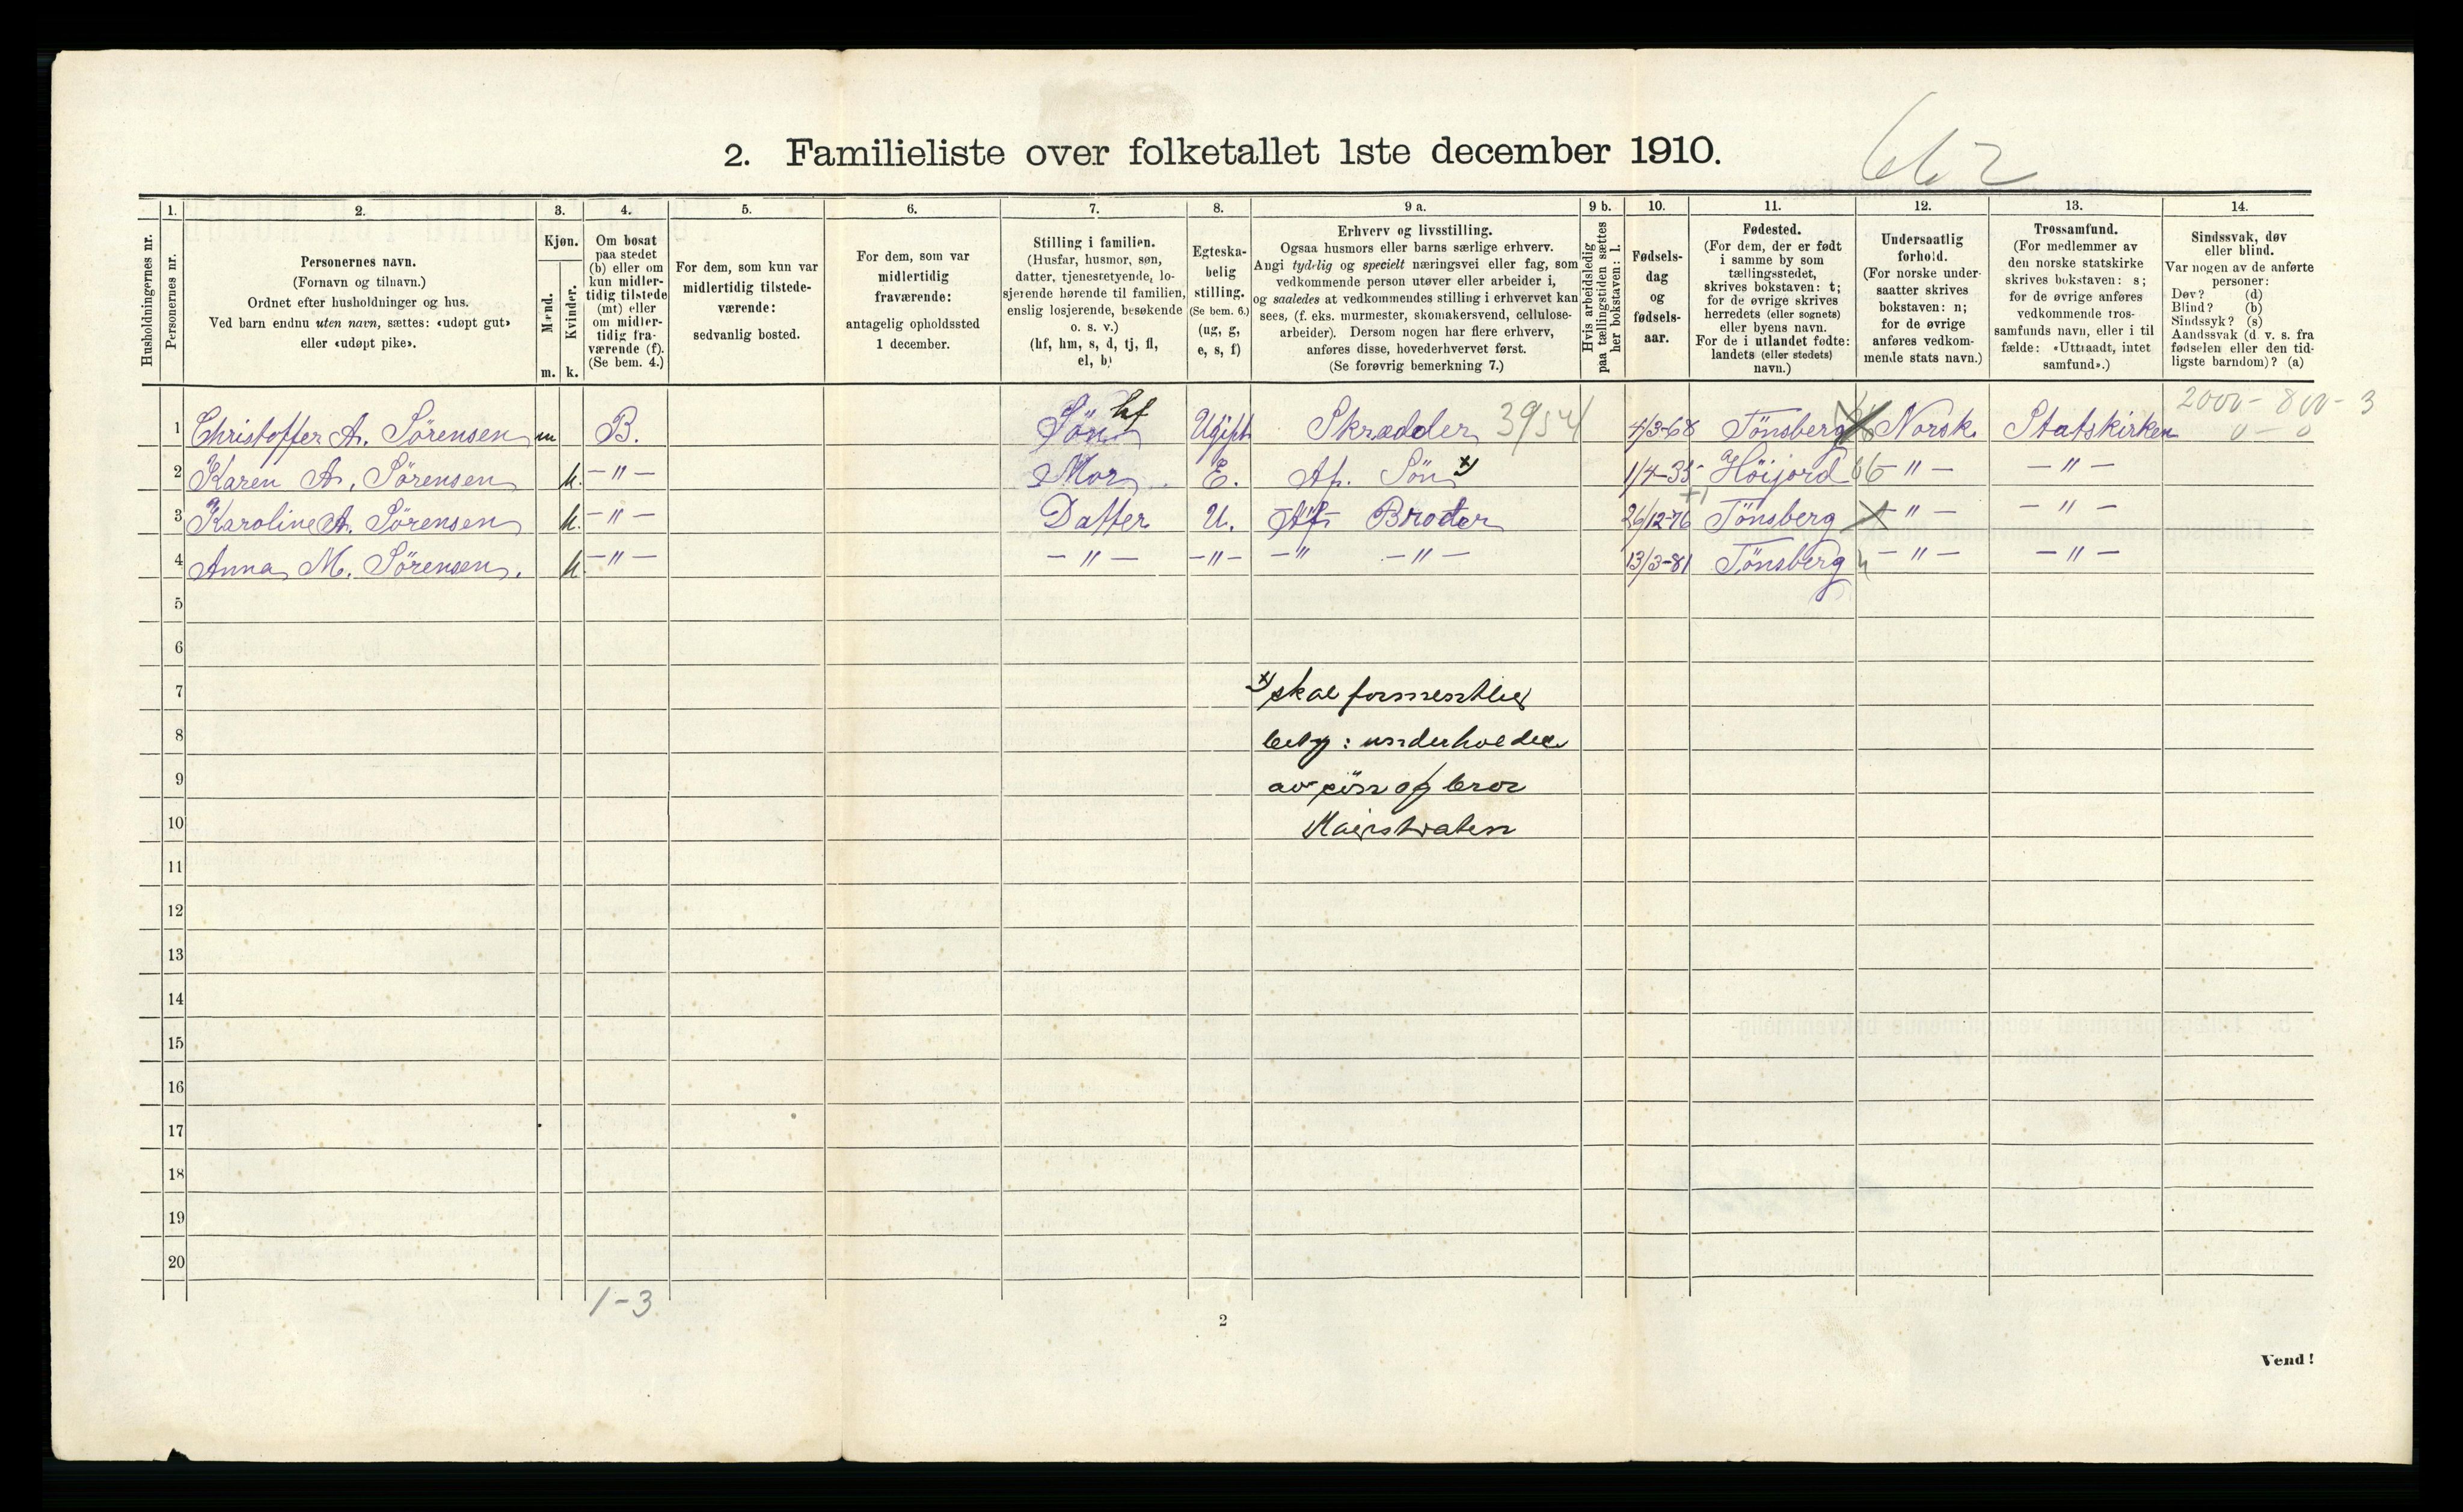 2. Familieliste over folketallet 1ste december 1910.
Husholdningernes nr.
1. Personernes nr.
2. Personernes navn. (Fornavn og tilnavn.) Ordnet efter husholdninger og hus. Ved barn endnu uten navn, sættes: «udøpt gut» eller «udøpt pike».
3. Kjøn. Mænd. m. Kvinder. k.
4. Om bosat paa stedet (b) eller om kun midler-tidig tilstede (mt) eller om midler-tidig fra-værende (f). (Se bem. 4.)
5. For dem, som kun var midlertidig tilstede-værende: sedvanlig bosted.
6. For dem, som var midlertidig fraværende: antagelig opholdssted 1 december.
7. Stilling i familien. (Husfar, husmor, søn, datter, tjenestetyende, lo-sjerende hørende til familien, enslig losjerende, besøkende o. s. v.) (hf, hm, s, d, tj, fl, el, b)
8. Egteska-belig stilling. (Se bem. 6.) (ug, g, e, s, f)
9 a. Erhverv og livsstilling. Ogsaa husmors eller barns særlige erhverv. Angi tydelig og specielt næringsvei eller fag, som vedkommende person utøver eller arbeider i, og saaledes at vedkommendes stilling i erhvervet kan sees, (f. eks. murmester, skomakersvend, cellulose-arbeider). Dersom nogen har flere erhverv, anføres disse, hovederhvervet først. (Se forøvrig bemerkning 7.)
9 b. Hvis arbeidsledig paa tællingstiden sættes her bokstaven: l.
10. Fødsels-dag og fødsels-aar.
11. Fødested. (For dem, der er født i samme by som tællingsstedet, skrives bokstaven: t; for de øvrige skrives herredets (eller sognets) eller byens navn. For de i utlandet fødte: landets (eller stedets) navn.)
12. Undersaatlig forhold. (For norske under-saatter skrives bokstaven: n; for de øvrige anføres vedkom-mende stats navn.)
13. Trossamfund. (For medlemmer av den norske statskirke skrives bokstaven: s; for de øvrige anføres vedkommende tros-samfunds navn, eller i til fælde: «Uttraadt, intet samfund».)
14. Sindssvak, døv eller blind. Var nogen av de anførte personer: Døv? (d) Blind? (b) Sindssyk? (s) Aandssvak (d. v. s. fra fødselen eller den tid-ligste barndom)? (a)
2000 - 800 - 3
1 Christoffer A. Sörensen m B. Sön hf Ugift Skrædder 3954 4/3-68 Tönsberg Norsk. Statskirken 0 - 0
2 Karen A. Sörensen k. -"- Mor E. Af. Sön x) 1/4-35 Höijord 66 -"- -"-
3 Karoline A. Sörensen k. -"- Datter U. Af Broder 26/12-76 Tönsberg -"- -"-
4 Anna M. Sörensen. k. -"- -"- -"- -"- -"- 13/3-81 Tönsberg -"- -"-
5
6
7 x) skal formentlig
8 bety: underholdes
9 av sön og bror
10 Magistraten
11
12
13
14
15
16
17
18
19
20
1-3
2
Vend!